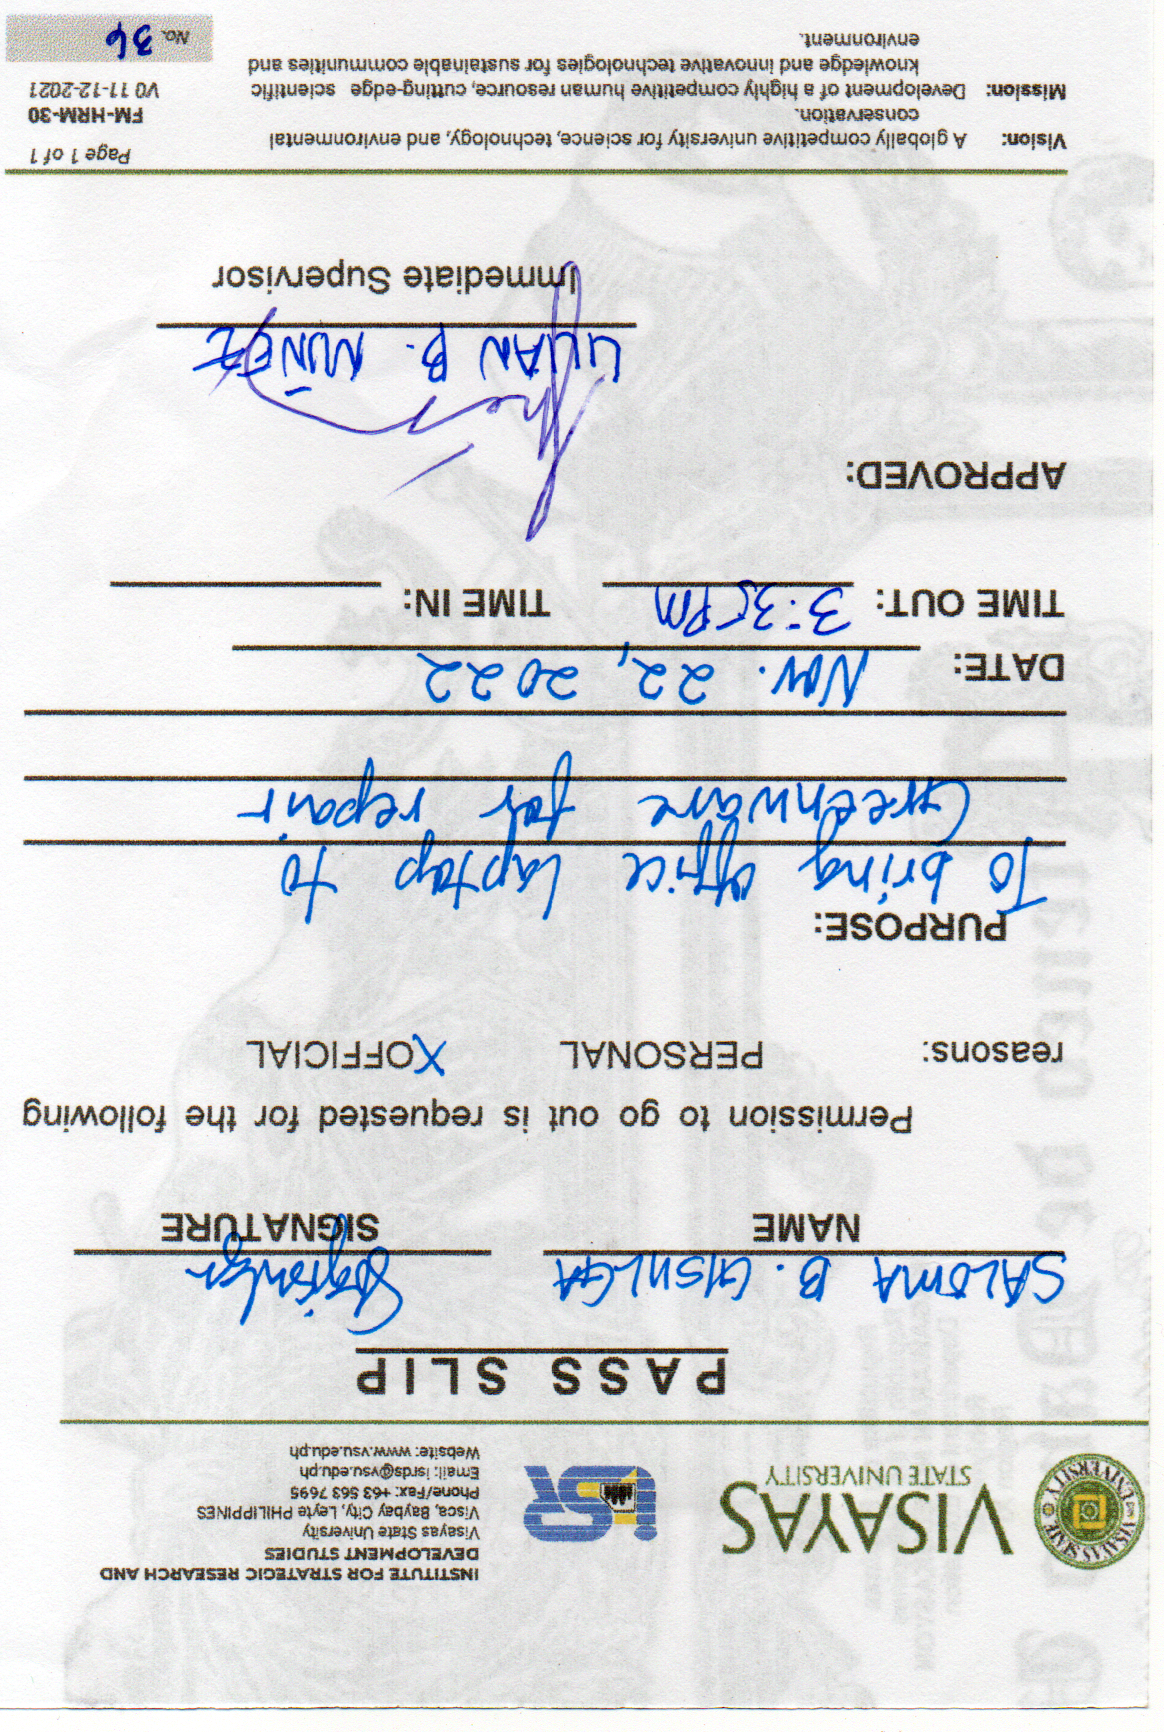 VISAYAS
STATE UNIVERSITY
ISR
INSTITUTE FOR STRATEGIC RESEARCH AND
DEVELOPMENT STUDIES
Visayas State University
Visca, Baybay City, Leyte PHILIPPINES
Phone/Fax: +63 563 7695
Email: isrds@vsu.edu.ph
Website: www.vsu.edu.ph
PASS SLIP
SALOMA B. GISULGA
NAME SIGNATURE
Permission to go out is requested for the following
reasons: PERSONAL XOFFICIAL
PURPOSE:
To bring office laptop to
Greenware for repair
DATE: Nov. 22, 2022
TIME OUT: 3:35 PM TIME IN:
APPROVED:
LILIAN B. NUÑEZ
Immediate Supervisor
Vision: A globally competitive university for science, technology, and environmental
conservation.
Mission: Development of a highly competitive human resource, cutting-edge scientific
knowledge and innovative technologies for sustainable communities and
environment.
Page 1 of 1
FM-HRM-30
V0 11-12-2021
No. 36